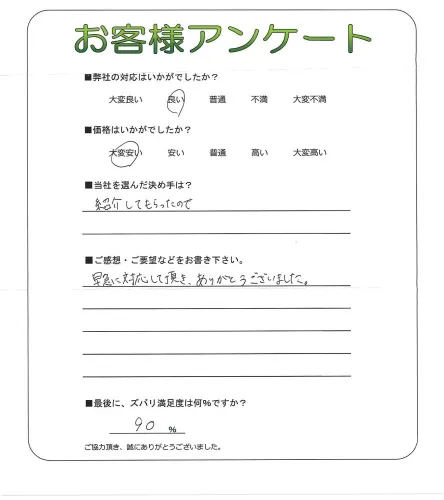 お客様アンケート
■弊社の対応はいかがでしたか？
大変良い 良い 普通 不満 大変不満
■価格はいかがでしたか？
大変安い 安い 普通 高い 大変高い
■当社を選んだ決め手は？
紹介してもらったので
■ご感想・ご要望などをお書き下さい。
早急に対応して頂き、ありがとうございました。
■最後に、ズバリ満足度は何%ですか？
90 %
ご協力頂き、誠にありがとうございました。